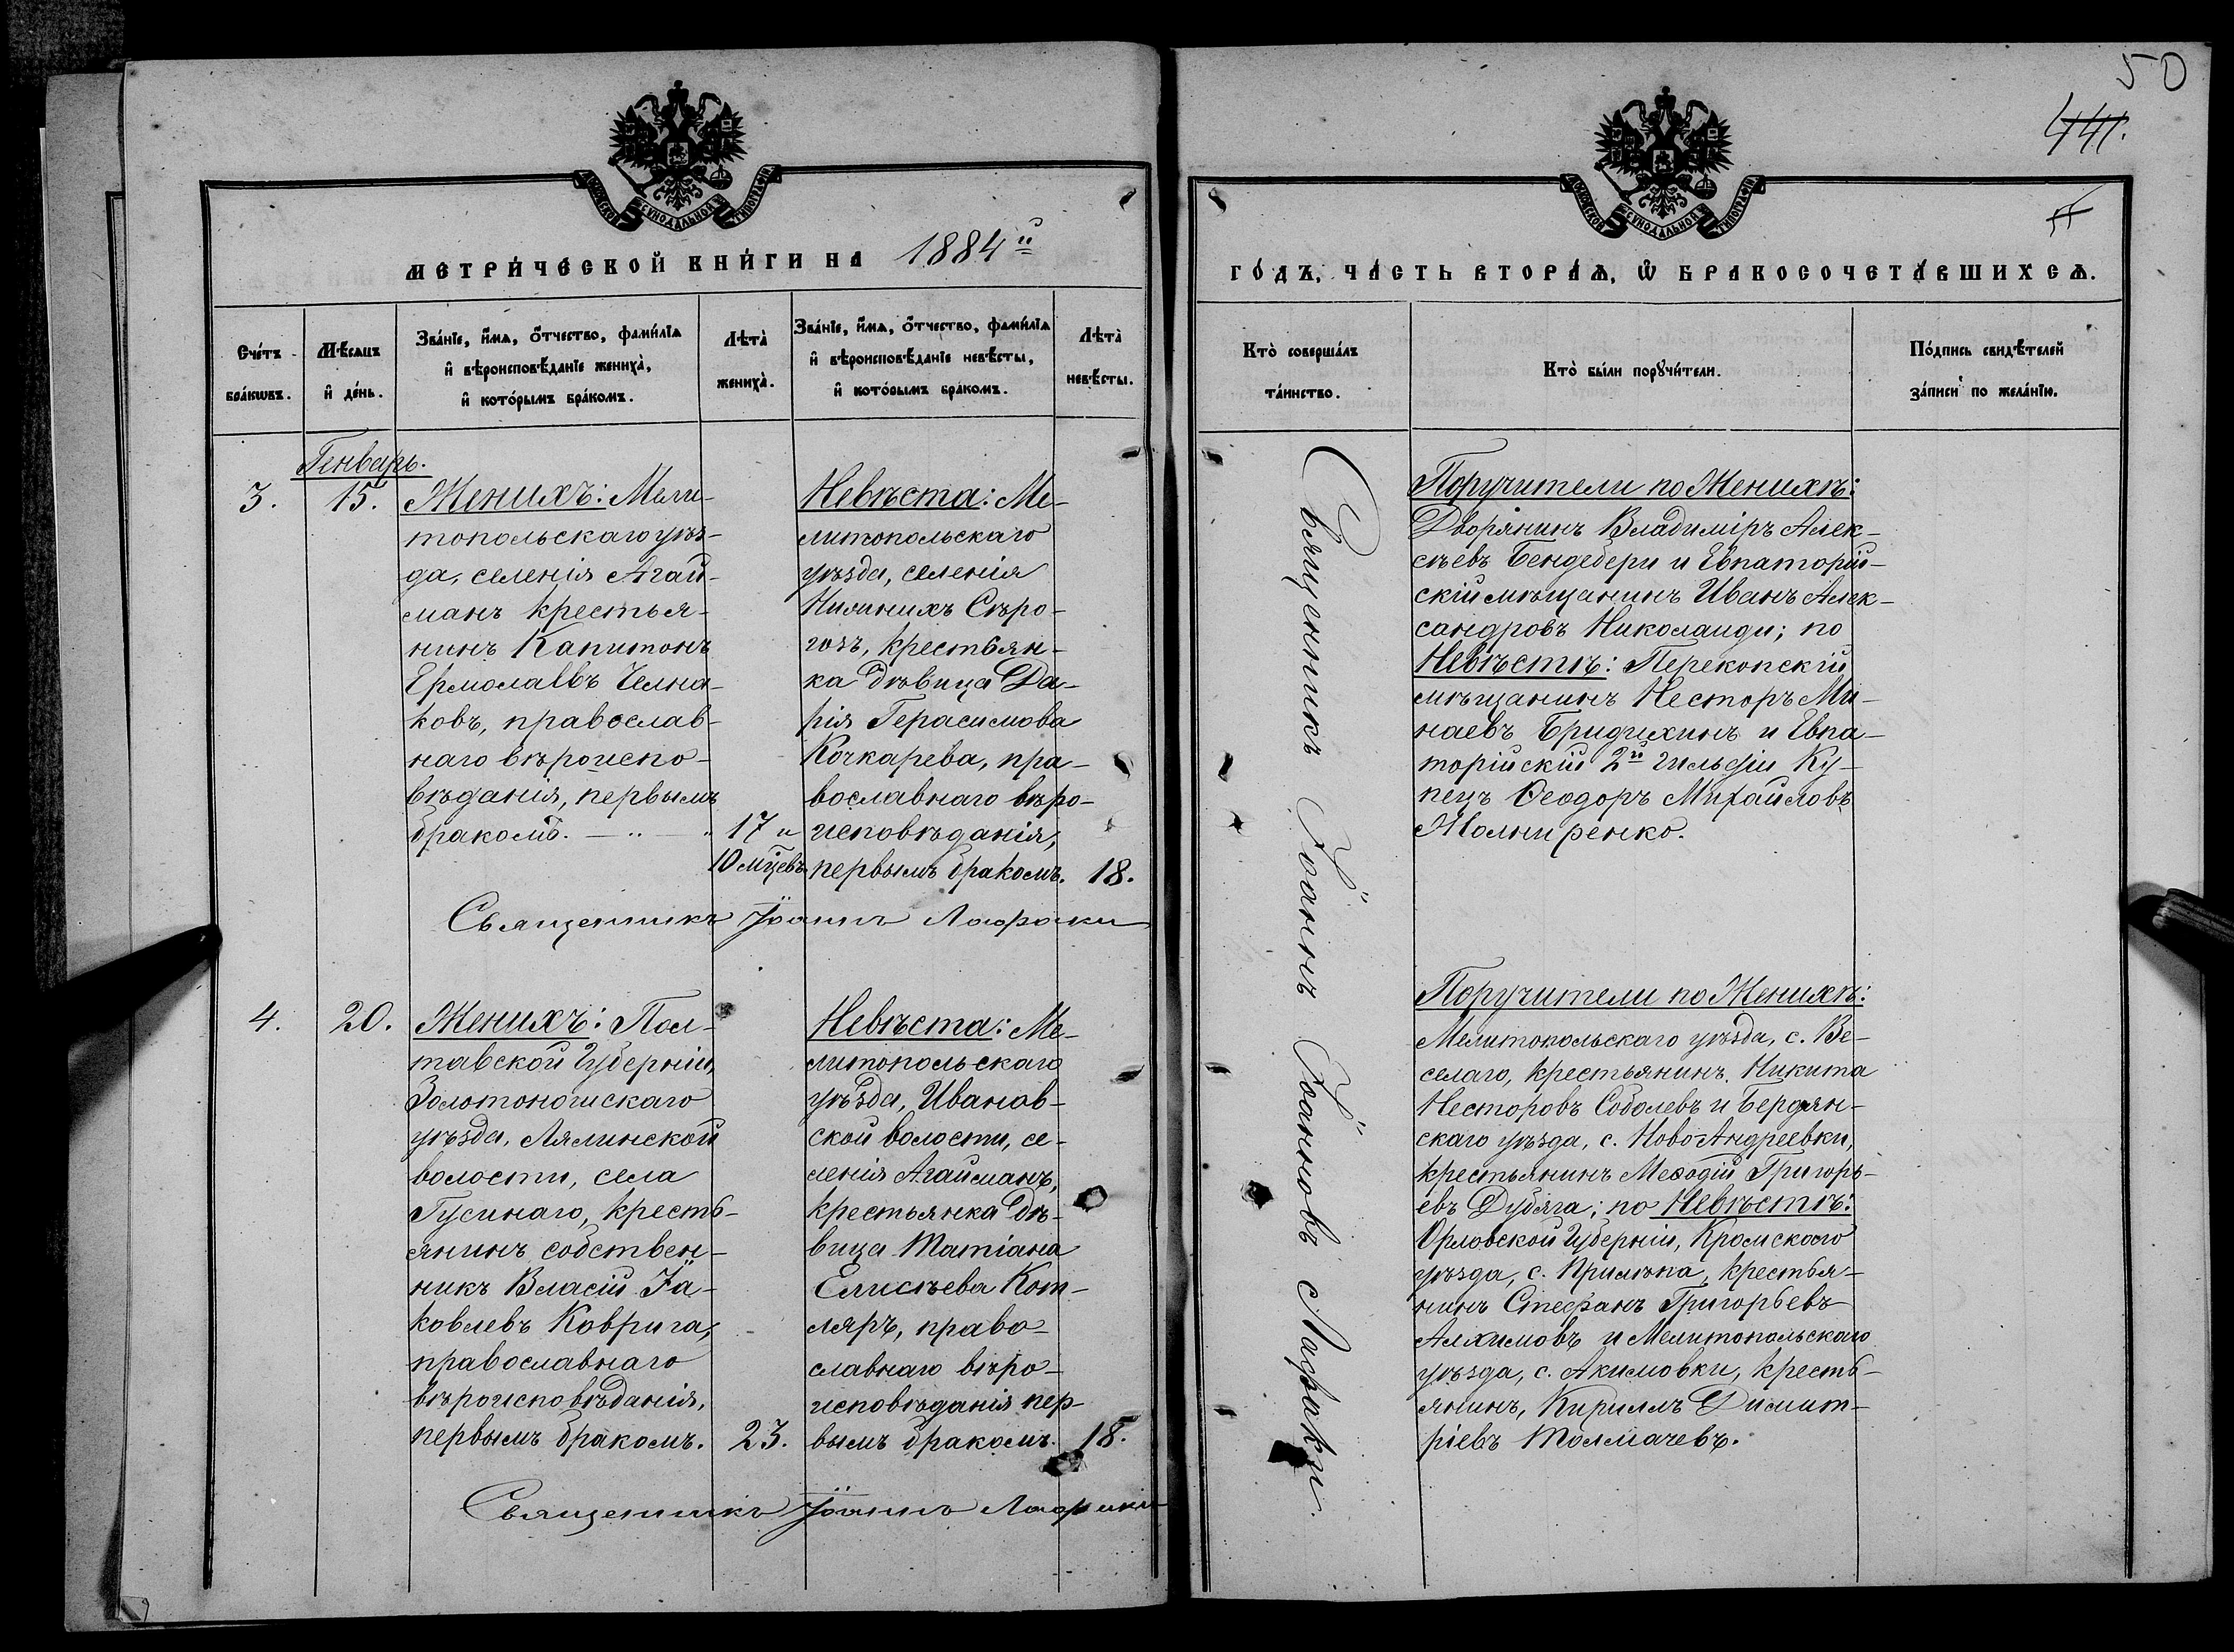 50
441.
МОСКОВСКОЙ СѴНОДАЛЬНОЙ ТИПОГРАФІИ
МЕТРИ́ЧЕСКОЙ КНИ́ГИ НА 1884й
Сче́тъ бра́кѡвъ.
Мѣ́сяцъ и҆ де́нь.
Зва́нїе, и҆́мѧ, ѻ҆́тчество, фами́лїѧ
и҆ вѣроисповѣ́данїе жениха̀,
и҆ кото́рымъ бра́комъ.
Лѣта̀ жениха̀.
Зва́нїе, и҆́мѧ, ѻ҆́тчество, фами́лїѧ
и҆ вѣроисповѣ́данїе невѣ́сты,
и҆ кото́рымъ бра́комъ.
Лѣта̀ невѣ́сты.
Генварь.
3. 15.
Женихъ: Мели-
топольскаго уѣз-
да, селенія Агай-
манъ крестья-
нинъ Капитонъ
Ермолаевъ Челна-
ковъ, православ-
наго вѣроиспо-
вѣданія, первымъ
бракомъ.
17 и
10 мцевъ
Невѣста: Ме-
литопольскаго
уѣзда, селенія
Нижнихъ Сѣро-
гозъ, крестьян-
ка дѣвица Да-
рія Герасимова
Кочкарева, пра-
вославнаго вѣро-
исповѣданія,
первымъ бракомъ. 18.
Священникъ Іоаннъ Лафаки
4. 20.
Женихъ: Пол-
тавской Губерніи,
Золотоношскаго
уѣзда, Лялинской
волости, села
Гусинаго, кресть-
янинъ собствен-
никъ Власій Іа-
ковлевъ Коврига,
православнаго
вѣроисповѣданія,
первымъ бракомъ. 23.
Невѣста: Ме-
литопольскаго
уѣзда, Иванов-
ской волости, се-
ленія Агайманъ,
крестьянка дѣ-
вица Татіана
Елисѣева Кот-
ляръ, право-
славнаго вѣро-
исповѣданія пер-
вымъ бракомъ. 18.
Священникъ Іоаннъ Лафаки
МОСКОВСКОЙ СѴНОДАЛЬНОЙ ТИПОГРАФІИ
ГО́ДЪ, ЧА́СТЬ ВТОРА́Ѧ, Ѡ҆ БРАКОСОЧЕТА́ВШИХСѦ.
Кто̀ соверша́лъ
та́инство.
Кто̀ бы́ли порꙋчи́тели.
По́дпись свидѣ́телей
за́писи по жела́нїю.
Священникъ Іоаннъ Іоанновъ Лафаки
Поручители по Женихѣ:
Дворянинъ Владиміръ Алек-
сѣевъ Бендебери и Евпаторій-
скій мѣщанинъ Иванъ Алек-
сандровъ Николаиди; по
Невѣстѣ: Перекопскій
мѣщанинъ Несторъ Ми-
наевъ Бридихинъ и Евпа-
торійскій 2й гильдіи Ку-
пецъ Ѳеодоръ Михайловъ
Молниренко.
Поручители по Женихѣ:
Мелитопольскаго уѣзда, с. Ве-
селаго, крестьянинъ Никита
Несторовъ Соболевъ и Бердян-
скаго уѣзда, с. Ново Андреевки,
крестьянинъ Меѳодій Григорь-
евъ Дубяга; по Невѣстѣ:
Орловской Губерніи, Кромскаго
уѣзда, с. Прилѣпа, крестья-
нинъ Стефанъ Григорьевъ
Алхимовъ и Мелитопольскаго
уѣзда, с. Акимовки, кресть-
янинъ, Кириллъ Димит-
ріевъ Толмачевъ.